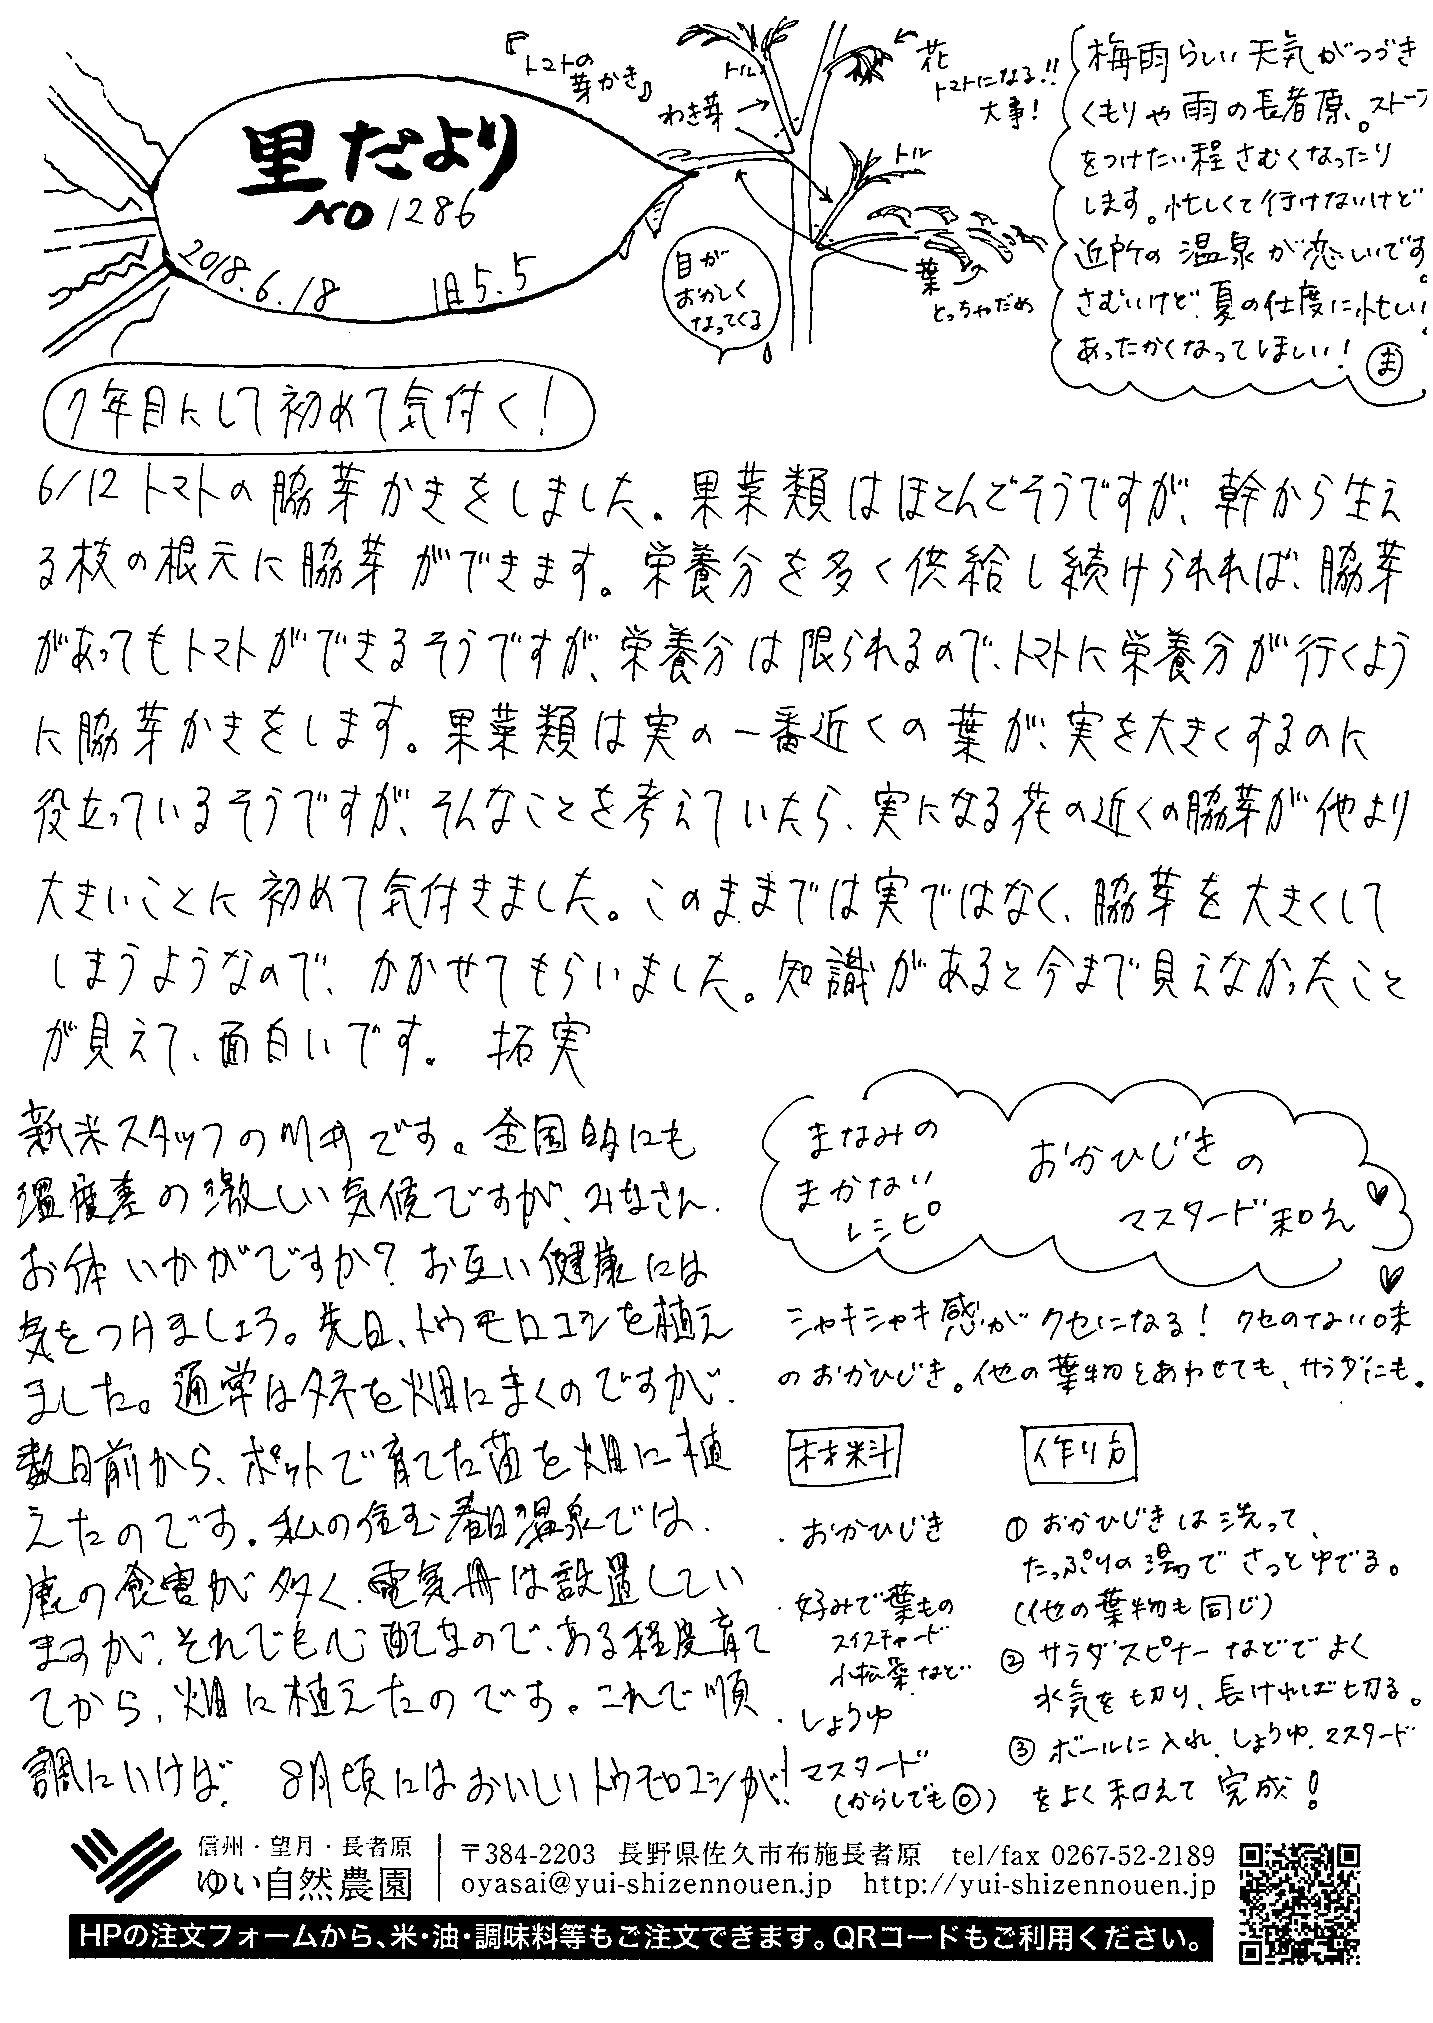 里だより
NO 1286
2018.6.18 旧5.5
『トマトの
芽かき』
トル
わき芽
花
トマトになる!!
大事!
トル
葉
とっちゃだめ
目が
おかしく
なってくる
梅雨らしい天気がつづき
くもりや雨の長者原。ストーブ
をつけたい程さむくなったり
します。忙しくて行けないけど
近所の温泉が恋しいです。
さむいけど、夏の仕度に忙しい。
あったかくなってほしい! ま
7年目にして初めて気付く!
6/12 トマトの脇芽かきをしました。果菜類はほとんどそうですが、幹から生え
る枝の根元に脇芽ができます。栄養分を多く供給し続けられれば、脇芽
があってもトマトができるそうですが、栄養分は限られるので、トマトに栄養分が行くよう
に脇芽かきをします。果菜類は実の一番近くの葉が、実を大きくするのに
役立っているそうですが、そんなことを考えていたら、実になる花の近くの脇芽が他より
大きいことに初めて気付きました。このままでは実ではなく、脇芽を大きくして
しまうようなので、かかせてもらいました。知識があると今まで見えなかったこと
が見えて、面白いです。 拓実
新米スタッフの川井です。全国的にも
温度差の激しい気候ですが、みなさん、
お体いかがですか? お互い健康には
気をつけましょう。先日、トウモロコシを植え
ました。通常はタネを畑にまくのですが、
数日前から、ポットで育てた苗を畑に植
えたのです。私の住む春日温泉では、
鹿の食害が多く、電気冊は設置してい
ますが、それでも心配なので、ある程度育て
てから、畑に植えたのです。これで順
調にいけば、8月頃にはおいしいトウモロコシが!
まなみの
まかない
レシピ
おかひじきの
マスタード和え
シャキシャキ感がクセになる! クセのない味
のおかひじき。他の葉物とあわせても、サラダにも。
材料
・おかひじき
・好みで葉もの
スイスチャード
小松菜など
・しょうゆ
・マスタード
(からしでも◎)
作り方
① おかひじきは洗って、
たっぷりの湯でさっとゆでる。
(他の葉物も同じ)
② サラダスピナーなどでよく
水気を切り、長ければ切る。
③ ボールに入れ、しょうゆ、マスタード
をよく和えて完成!
信州・望月・長者原
ゆい自然農園
〒384-2203 長野県佐久市布施長者原 tel/fax 0267-52-2189
oyasai@yui-shizennouen.jp http://yui-shizennouen.jp
HPの注文フォームから、米・油・調味料等もご注文できます。QRコードもご利用ください。